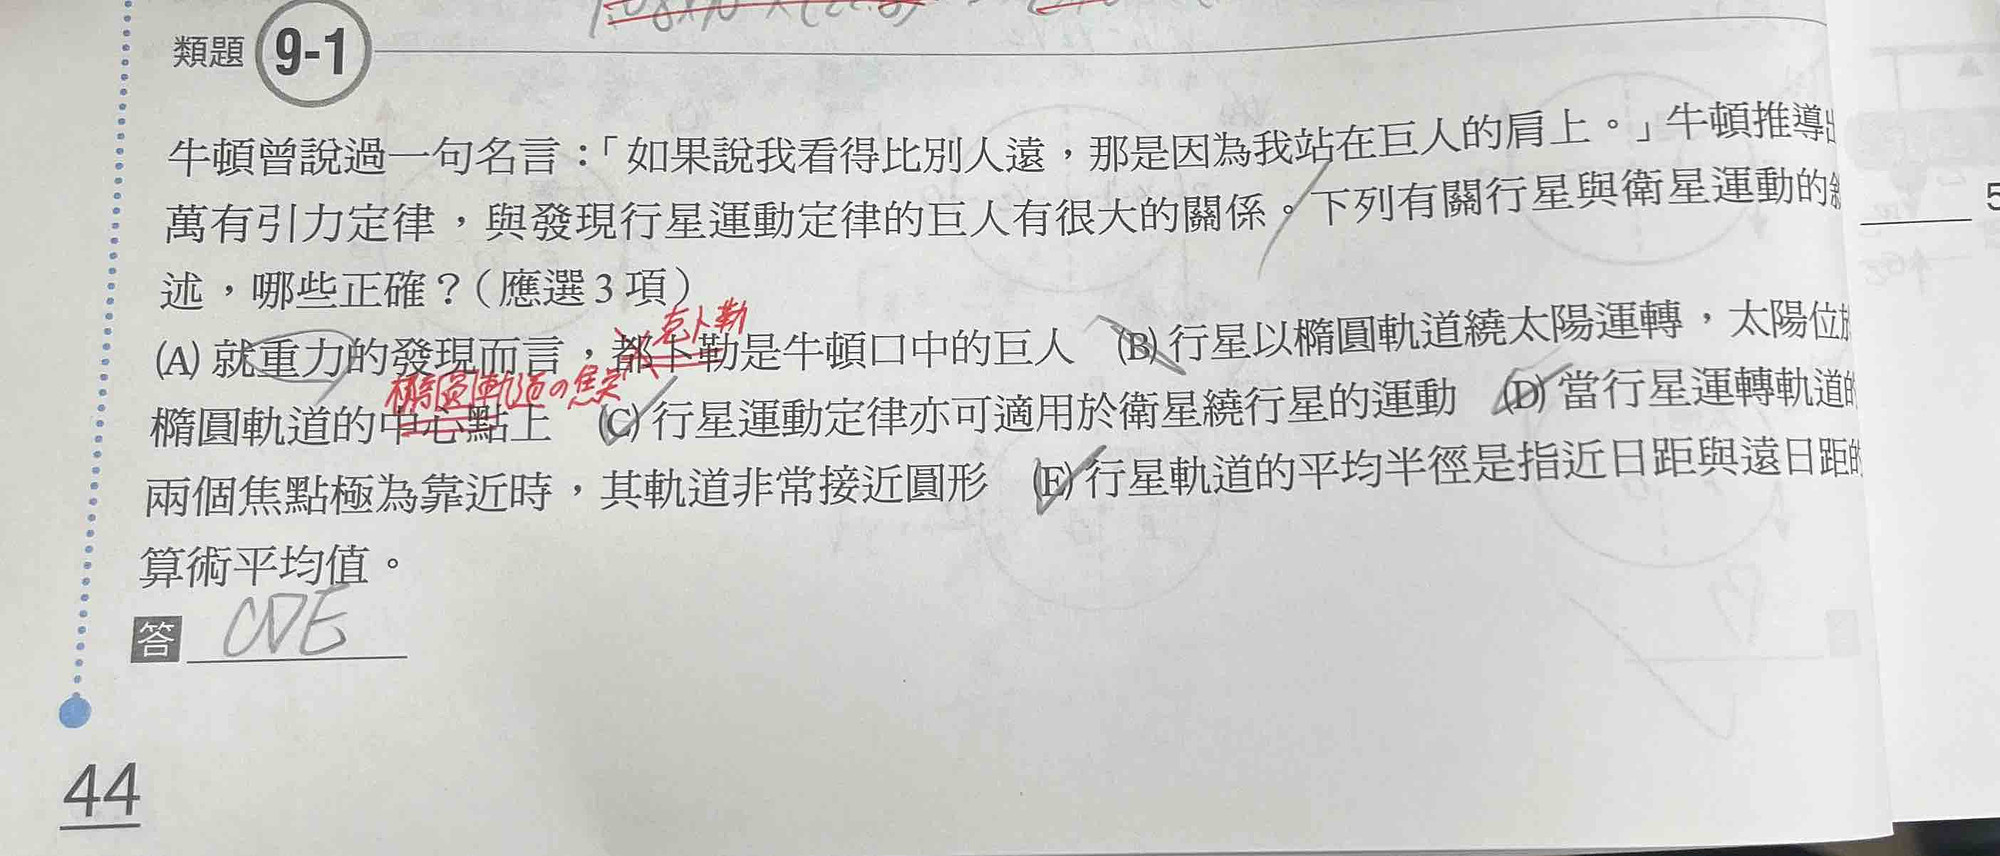 類題 9-1
牛頓曾說過一句名言：「如果說我看得比別人遠，那是因為我站在巨人的肩上。」牛頓推導出
萬有引力定律，與發現行星運動定律的巨人有很大的關係。下列有關行星與衛星運動的敘
述，哪些正確？（應選3項）
克卜勒
(A) 就重力的發現而言，都卜勒是牛頓口中的巨人 (B) 行星以橢圓軌道繞太陽運轉，太陽位於
橢圓軌道の焦點
橢圓軌道的中心點上 (C) 行星運動定律亦可適用於衛星繞行星的運動 (D) 當行星運轉軌道的
兩個焦點極為靠近時，其軌道非常接近圓形 (E) 行星軌道的平均半徑是指近日距與遠日距的
算術平均值。
答 CDE
44
5